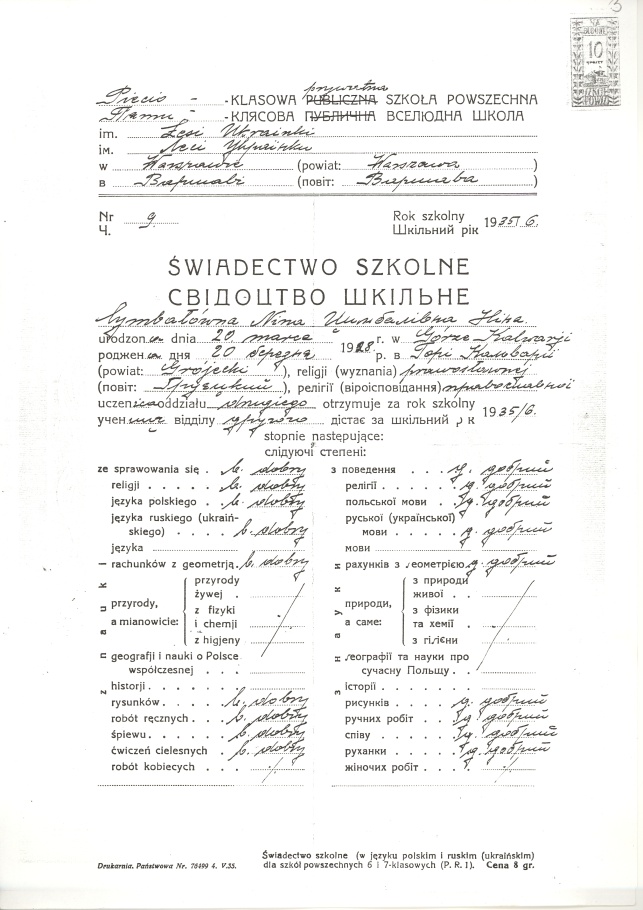 3
NA
BUDOWĘ
10
GROSZY
SZKÓŁ
POWSZ.
prywatna
Pięcio - - KLASOWA PUBLICZNA SZKOŁA POWSZECHNA
Пяти - - КЛЯСОВА ПУБЛИЧНА ВСЕЛЮДНА ШКОЛА
im. Łesi Ukrainki
ім. Лесі Українки
w Warszawie (powiat: Warszawa )
в Варшаві (повіт: Варшава )
Nr 9 Rok szkolny 1935/6.
Ч. Шкільний рік
ŚWIADECTWO SZKOLNE
СВІДОЦТВО ШКІЛЬНЕ
Cymbałówna Nina Цимбалівна Ніна
urodzona dnia 20 marca 1928 r. w Górze Kalwarji
роджена дня 20 березня р. в Горі Кальварії
(powiat: Grójecki ), religji (wyznania) prawosławnej
(повіт: Груецкий ), релігії (віроісповідання) православної
uczenica oddziału drugiego otrzymuje za rok szkolny 1935/6.
учениця відділу другого дістає за шкільний рік
stopnie następujące:
слідуючі степені:
ze sprawowania się . b. dobry з поведення . . . д. добрий
religji . . . . . b. dobry релігії . . . . . д. добрий
języka polskiego . b. dobry польської мови . . д. добрий
języka ruskiego (ukraiń- руської (української)
skiego) . . . b. dobry мови . . . . д. добрий
języka мови
rachunków z geometrją. b. dobry рахунків з геометрією. д. добрий
przyrody з природи
żywej . живої . .
przyrody, z fizyki природи, з фізики
a mianowicie: i chemji а саме: та хемії .
z higjeny з гігієни
geografji i nauki o Polsce географії та науки про
współczesnej . . . сучасну Польщу . .
historji . . . . . історії . . . . .
rysunków . . . . b. dobry рисунків . . . . д. добрий
robót ręcznych . . . b. dobry ручних робіт . . . д. добрий
śpiewu . . . . . b. dobry співу . . . . . д. добрий
ćwiczeń cielesnych . b. dobry руханки . . . . . д. добрий
robót kobiecych . . . жіночих робіт . . .
Drukarnia. Państwowa Nr. 78499 4. V.35.
Świadectwo szkolne (w języku polskim i ruskim (ukraińskim)
dla szkół powszechnych 6 i 7-klasowych (P. R. 1). Cena 8 gr.